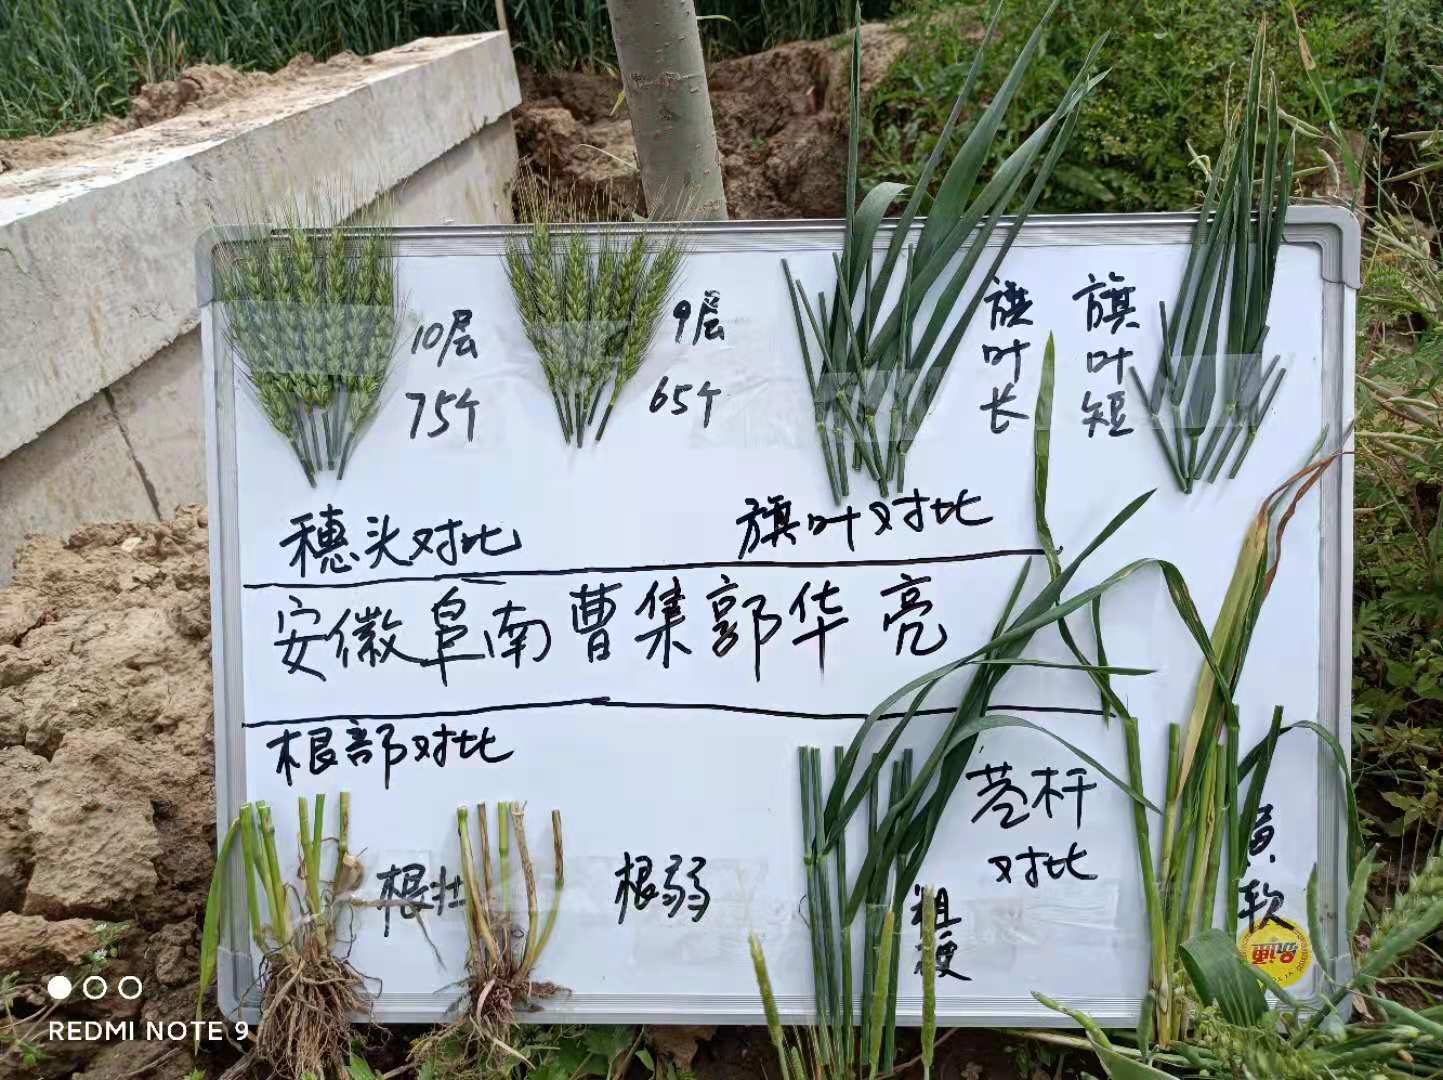 10层
75个
9层
65个
旗叶长
旗叶短
穗头对比
旗叶对比
安徽阜南曹集郭华亮
根部对比
根壮
根弱
茎杆
对比
粗硬
黄.软
REDMI NOTE 9